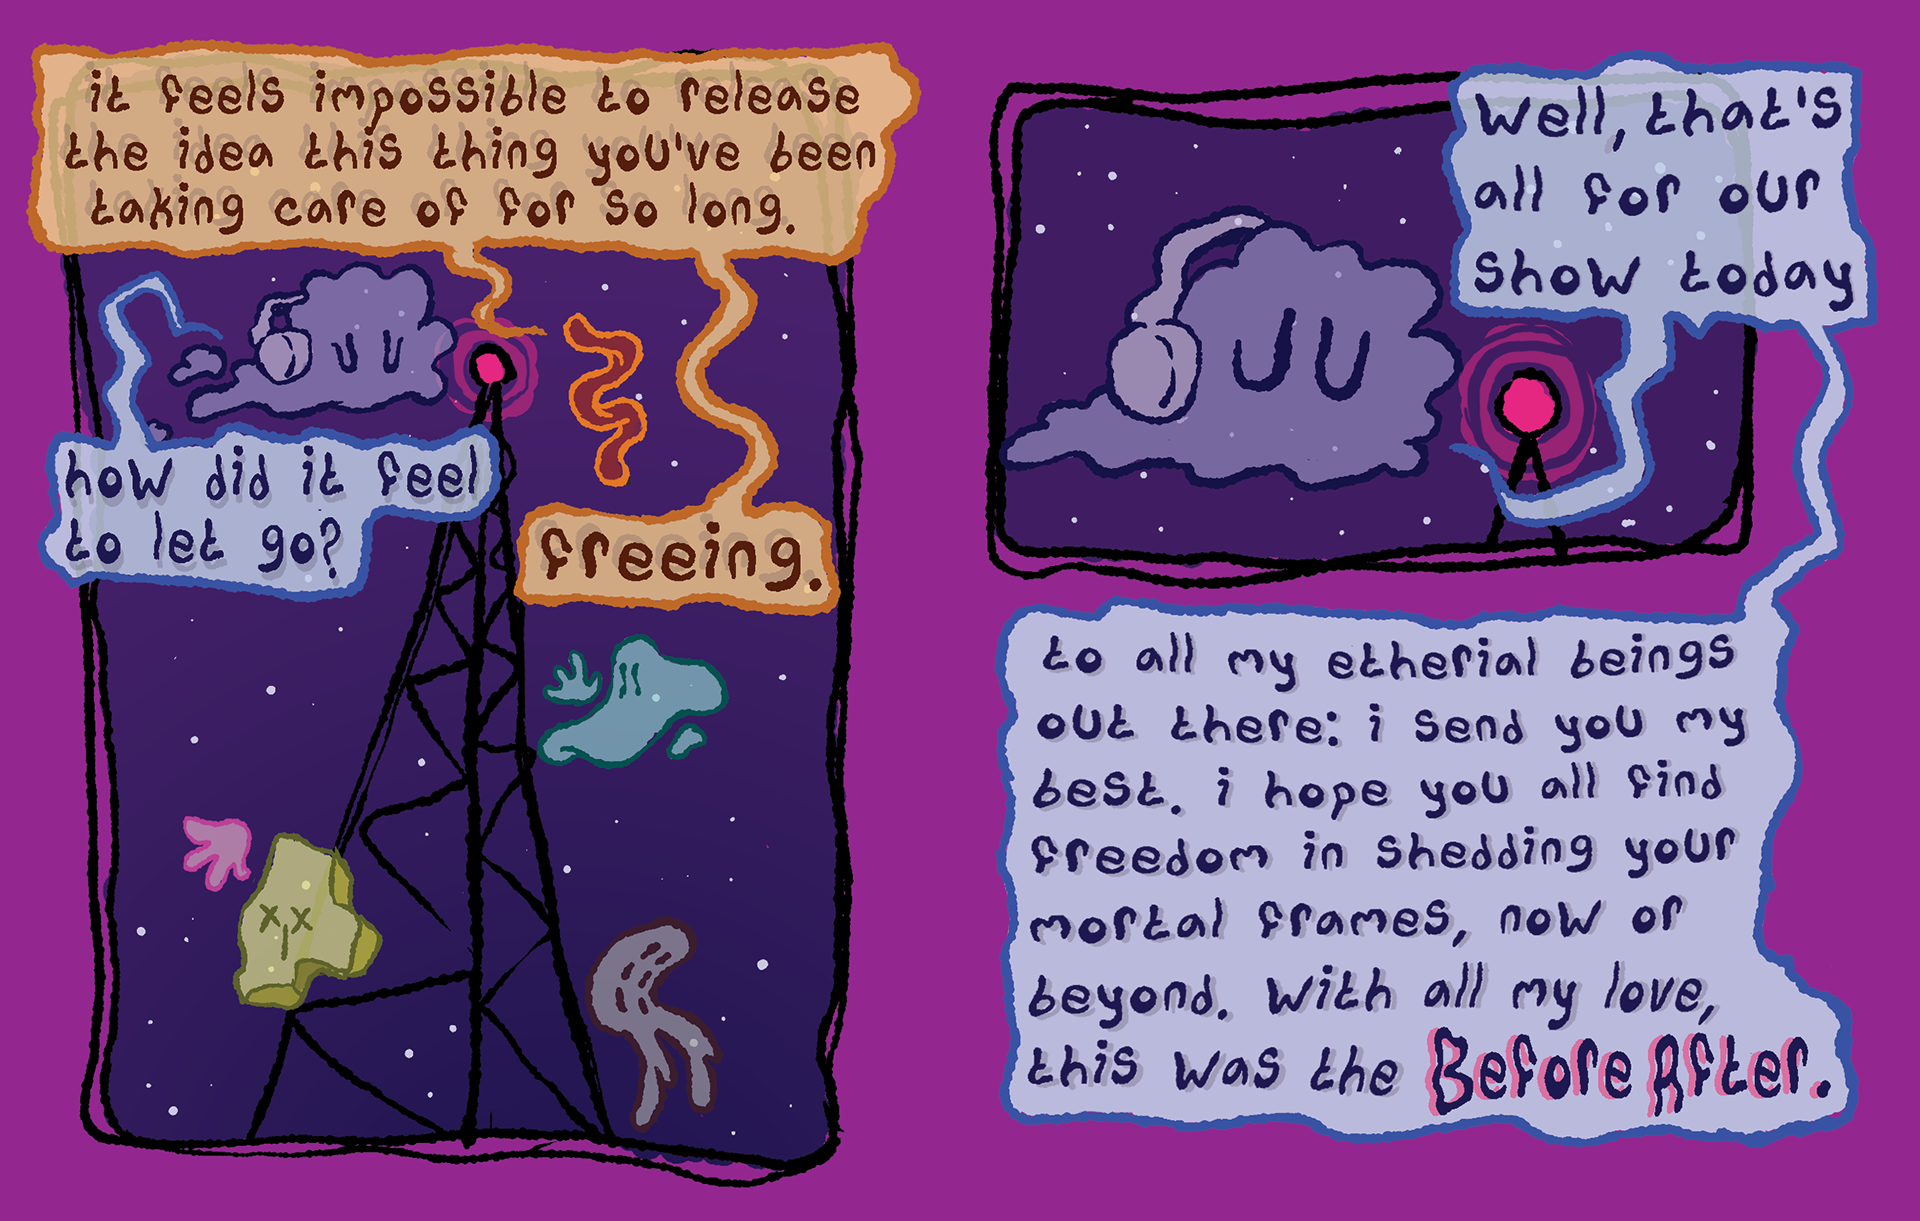 it feels impossible to release
the idea this thing you've been
taking care of for so long.
how did it feel
to let go?
freeing.
Well, that's
all for our
show today
to all my etherial beings
out there: i send you my
best. i hope you all find
freedom in shedding your
mortal frames, now or
beyond. With all my love,
this was the Before After.